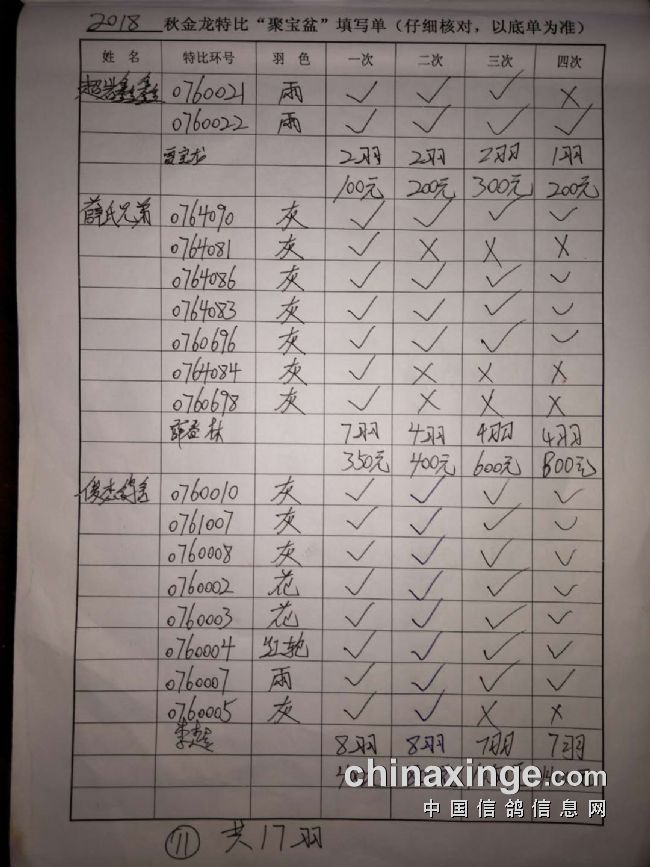 2018 秋金龙特比“聚宝盆”填写单（仔细核对，以底单为准）
姓 名 特比环号 羽 色 一次 二次 三次 四次
0760021 雨 ✓ ✓ ✓ ×
0760022 雨 ✓ ✓ ✓ ✓
2羽 2羽 2羽 1羽
100元 200元 300元 200元
薛氏兄弟 0764090 灰 ✓ ✓ ✓ ✓
0764081 灰 ✓ × × ×
0764086 灰 ✓ ✓ ✓ ✓
0764083 灰 ✓ ✓ ✓ ✓
0760696 灰 ✓ ✓ ✓ ✓
0764084 灰 ✓ × × ×
0760698 灰 ✓ × × ×
7羽 4羽 4羽 4羽
350元 400元 600元 800元
0760010 灰 ✓ ✓ ✓ ✓
0761007 灰 ✓ ✓ ✓ ✓
0760008 灰 ✓ ✓ ✓ ✓
0760002 花 ✓ ✓ ✓ ✓
0760003 花 ✓ ✓ ✓ ✓
0760004 红轮 ✓ ✓ ✓ ✓
0760007 雨 ✓ ✓ ✓ ✓
0760005 灰 ✓ ✓ × ×
8羽 8羽 7羽 7羽
chinaxinge.com
中国信鸽信息网
⑪ 共17羽